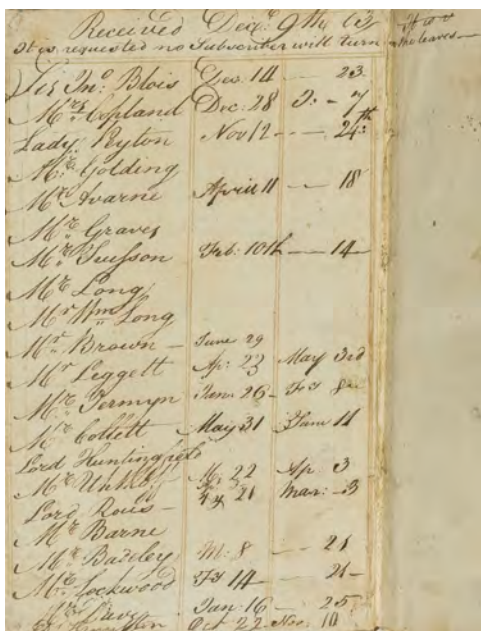 Received Decr. 9th 03
It is requested no Subscriber will turn the leaves—
Sir Jno. Blois Dec. 14 — 23
Mrs. Copland Dec: 28 J: - 7
Lady Peyton Nov 12 - — 24th
Mr. Golding
Mr. Avarne April 11 — 18
Mr. Graves
Mr. Feb: 10th — 14
Mr. Long
Mr Wm Long
Mr. Brown — June 29
Mr Leggett Ap: 23 May 3rd
Mr. Jermyn Jan: 26 - Fy 8
Mr. Collett May 31 11
Lord Huntingfield
Mr. 22 Ap: 3
Lord Rous — Fy 21 Mar: - 3
Mr Barne
Mr. Badeley M: 8 — 21
Mr. Lockwood Fy 14 — 21
Mr. Jan: 16 — 25
Oct 22 Nov: 10